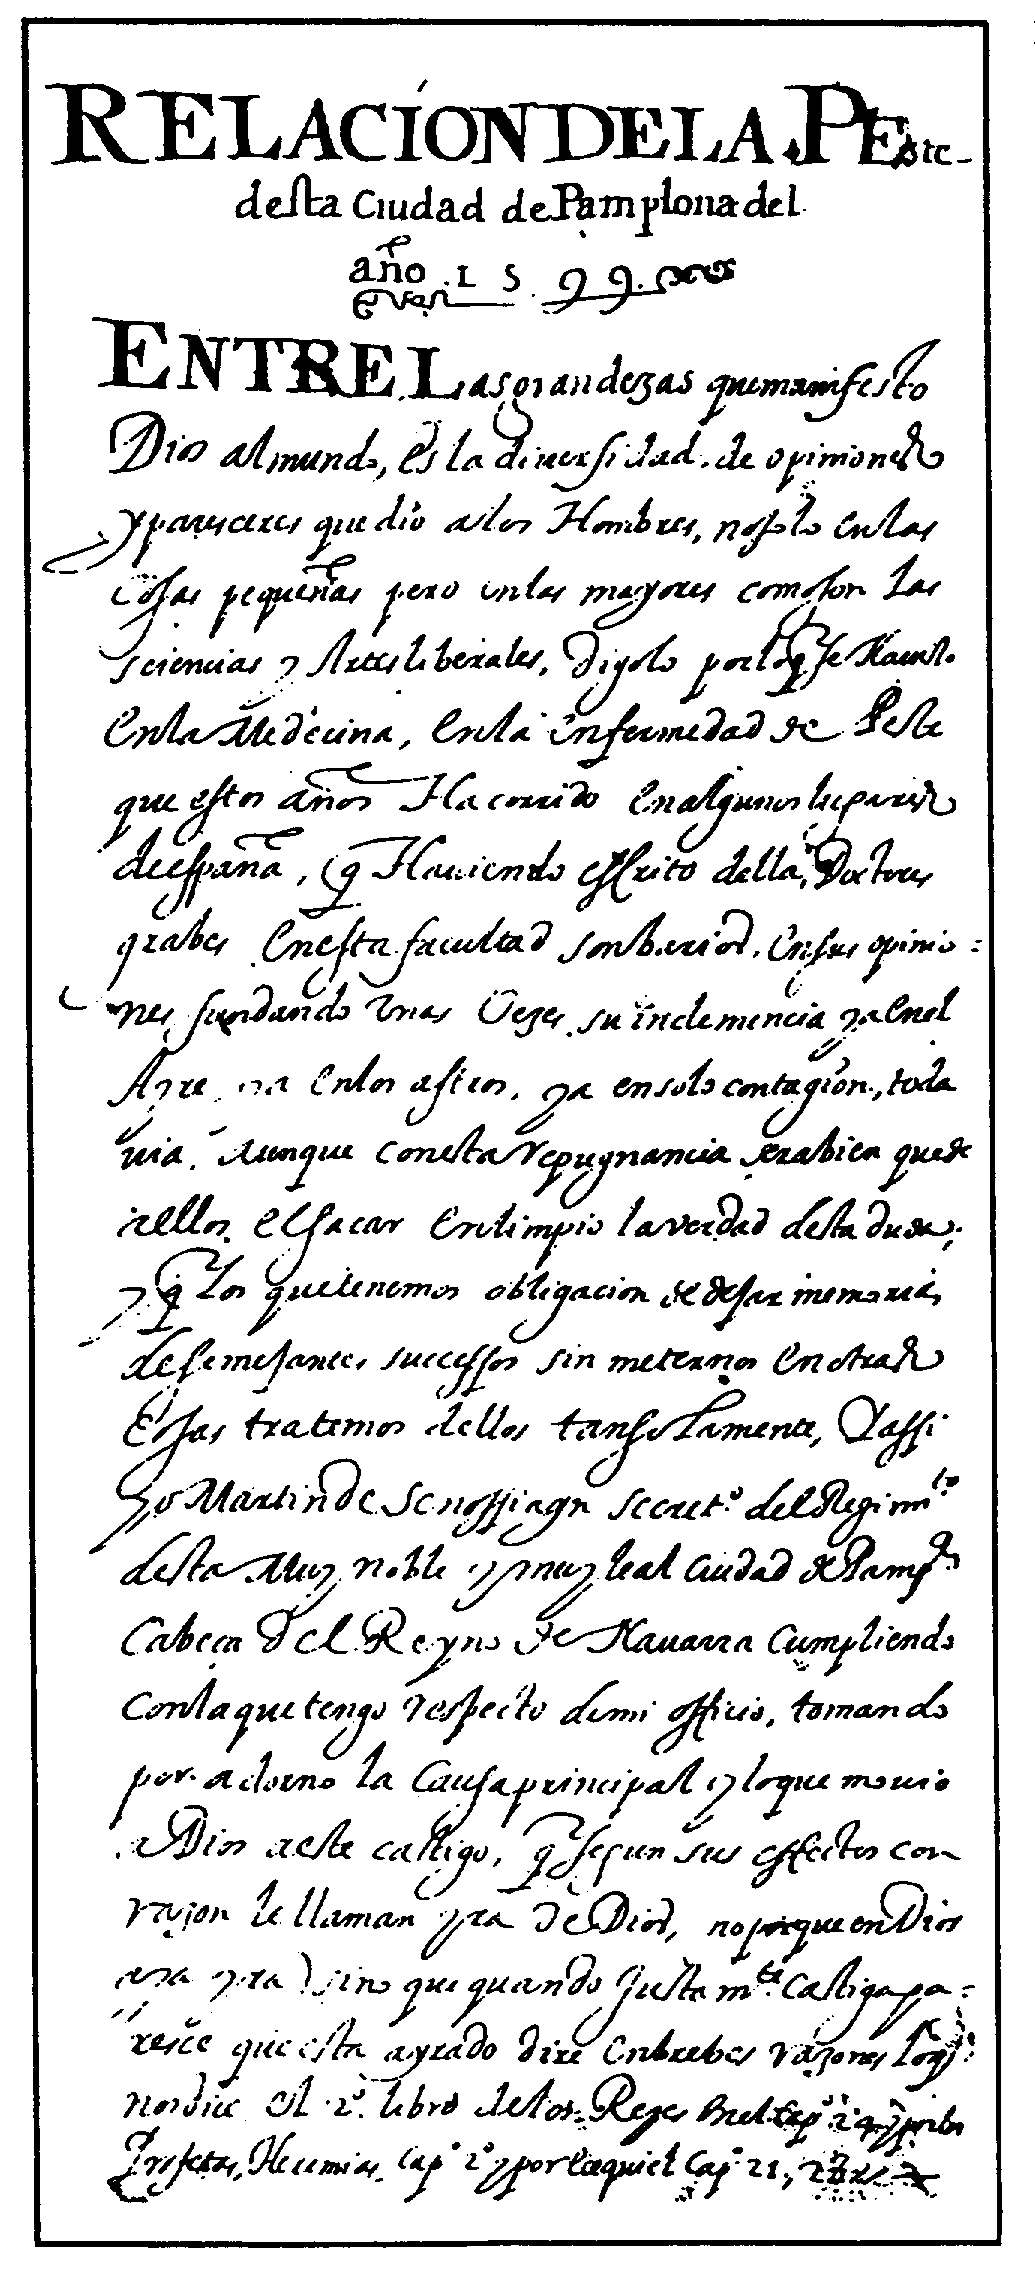 RELACION DE LA PEste
desta Ciudad de Pamplona del
año 1599
ENTRE Las grandezas que manifesto
Dios al mundo, es la diuersidad. de opiniones
y paresceres que dio a los Hombres, no solo en las
cosas pequeñas pero en las mayores como son las
sciencias y Artes liberales, digolo por lo q̃ se
En la Medecina, en la enfermedad de Peste
que estos años Ha corrido en algunos lugares
de españa, q̃ Hauiendo escrito della, Doctores
grabes en esta facultad son barios. en sus opinio=
nes, fundando Unas Uezes su inclemencia ya en el
Ayre ya en los astros, ya en solo contagion, toda
uia, Aunque con esta repugnancia sera bien que de
ellos el sacar en limpio la verdad desta duda,
y q̃ los que tenemos obligacion de desar memoria,
de semesantes successos sin meternos en otras
Cosas tratemos dellos tan solamente, Y assi
yo Martin de Senossiayn secret.º del Regim.to
desta Muy noble y muy leal Ciudad de Pamp.na
Cabeça del Reyno de Nauarra Cumpliendo
con la que tengo respecto de mi officio, tomando
por adorno la Causa principal y lo que mouio
a Dios a este castigo, q̃ segun sus effectos con
razon le llaman yra de Dios, no porque en Dios
aya yra) sino que quando Justam.te Castiga pa=
resce que esta ayrado dire en brebes razones lo q̃
nos dice el 2º. libro de los Reyes en el cap.º 24 y por los
Profetas, Hieremias, Cap.º 2º y por Ezequiel Cap.º 21,